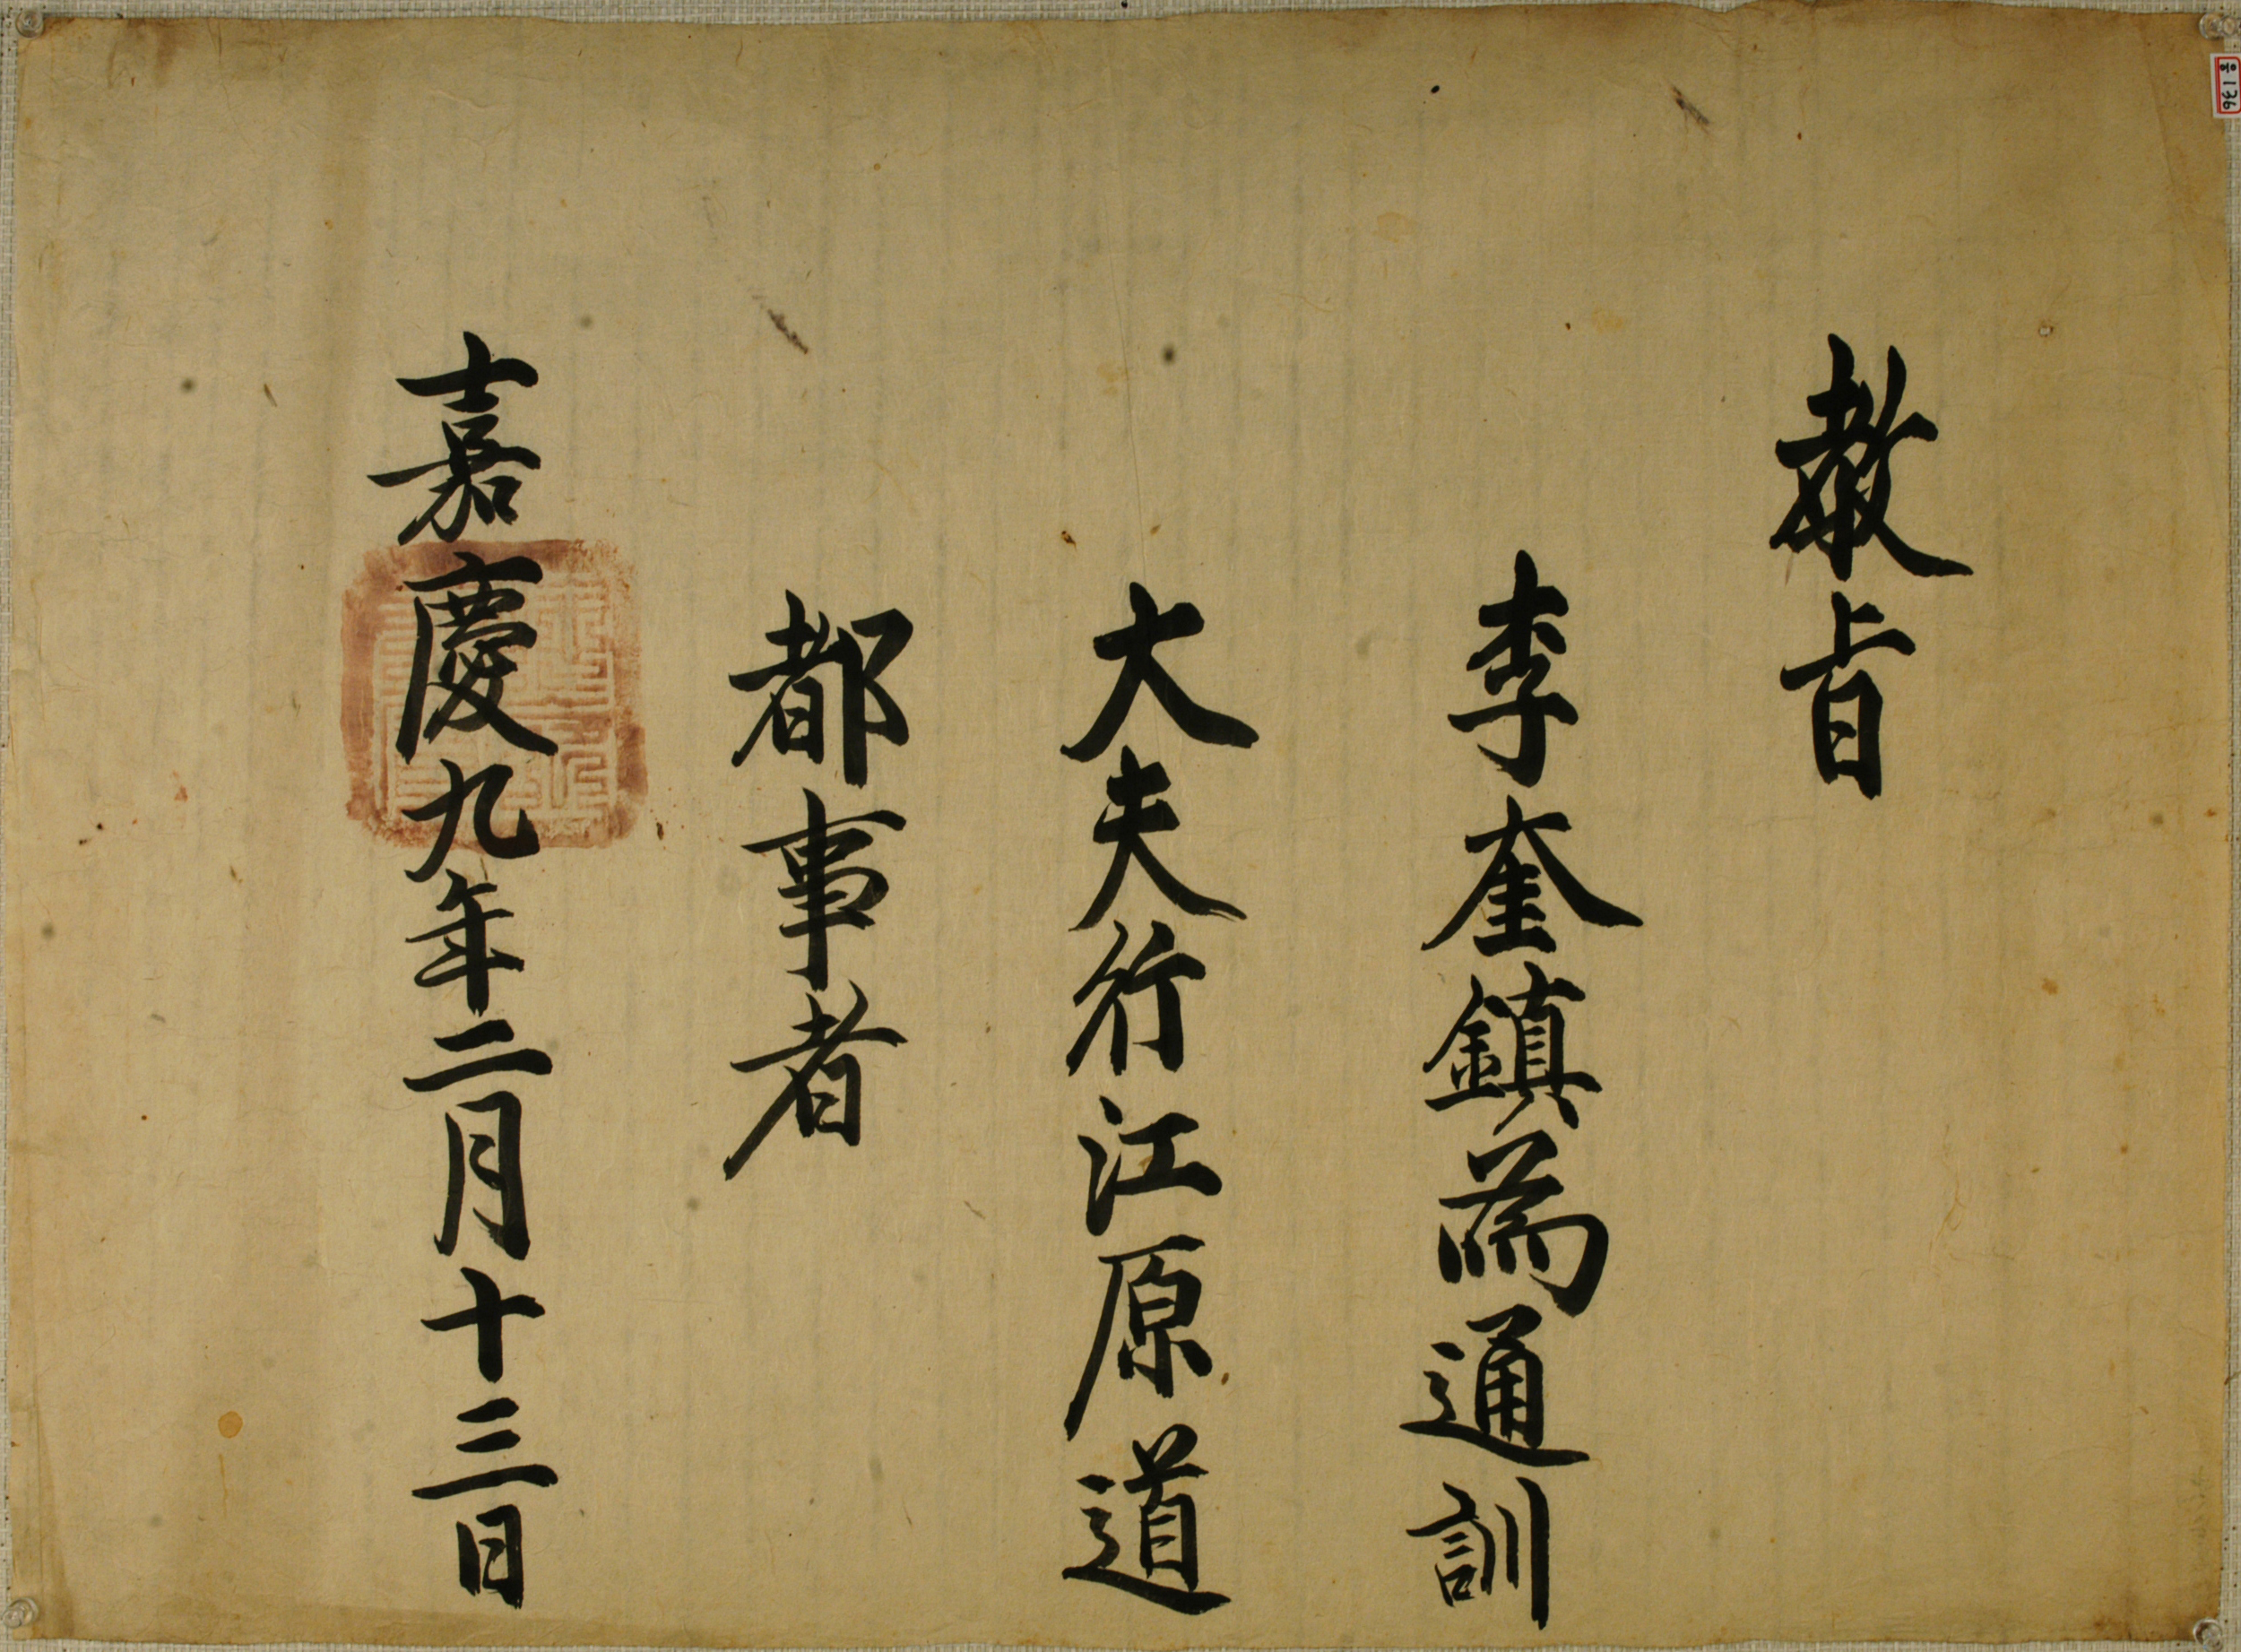 敎旨
李奎鎭爲通訓
大夫行江原道
都事者
嘉慶九年二月十三日
136